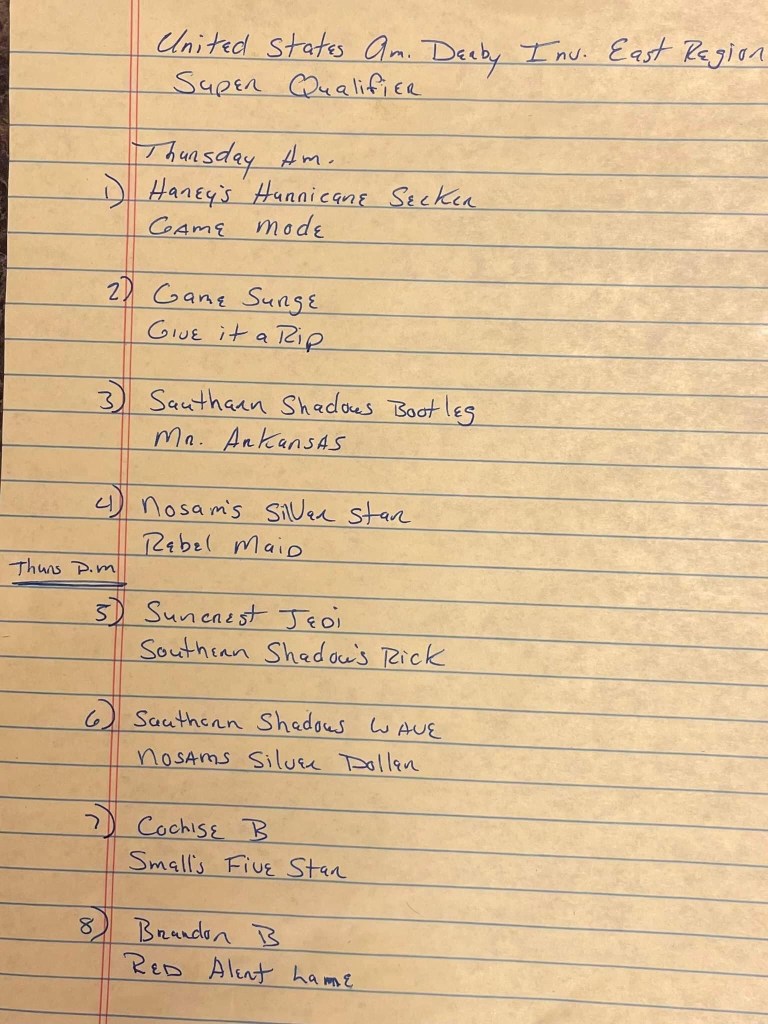 United States Am. Derby Inv. East Region
Super Qualifier
Thursday Am.
1) Haney's Hurricane Seeker
Game Mode
2) Game Surge
Give it a Rip
3) Southern Shadows Bootleg
Mr. Arkansas
4) Nosam's Silver Star
Rebel Maid
Thurs P.m
5) Suncrest Jedi
Southern Shadow's Rick
6) Southern Shadows Wave
Nosams Silver Dollar
7) Cochise B
Small's Five Star
8) Brandon B
Red Alert